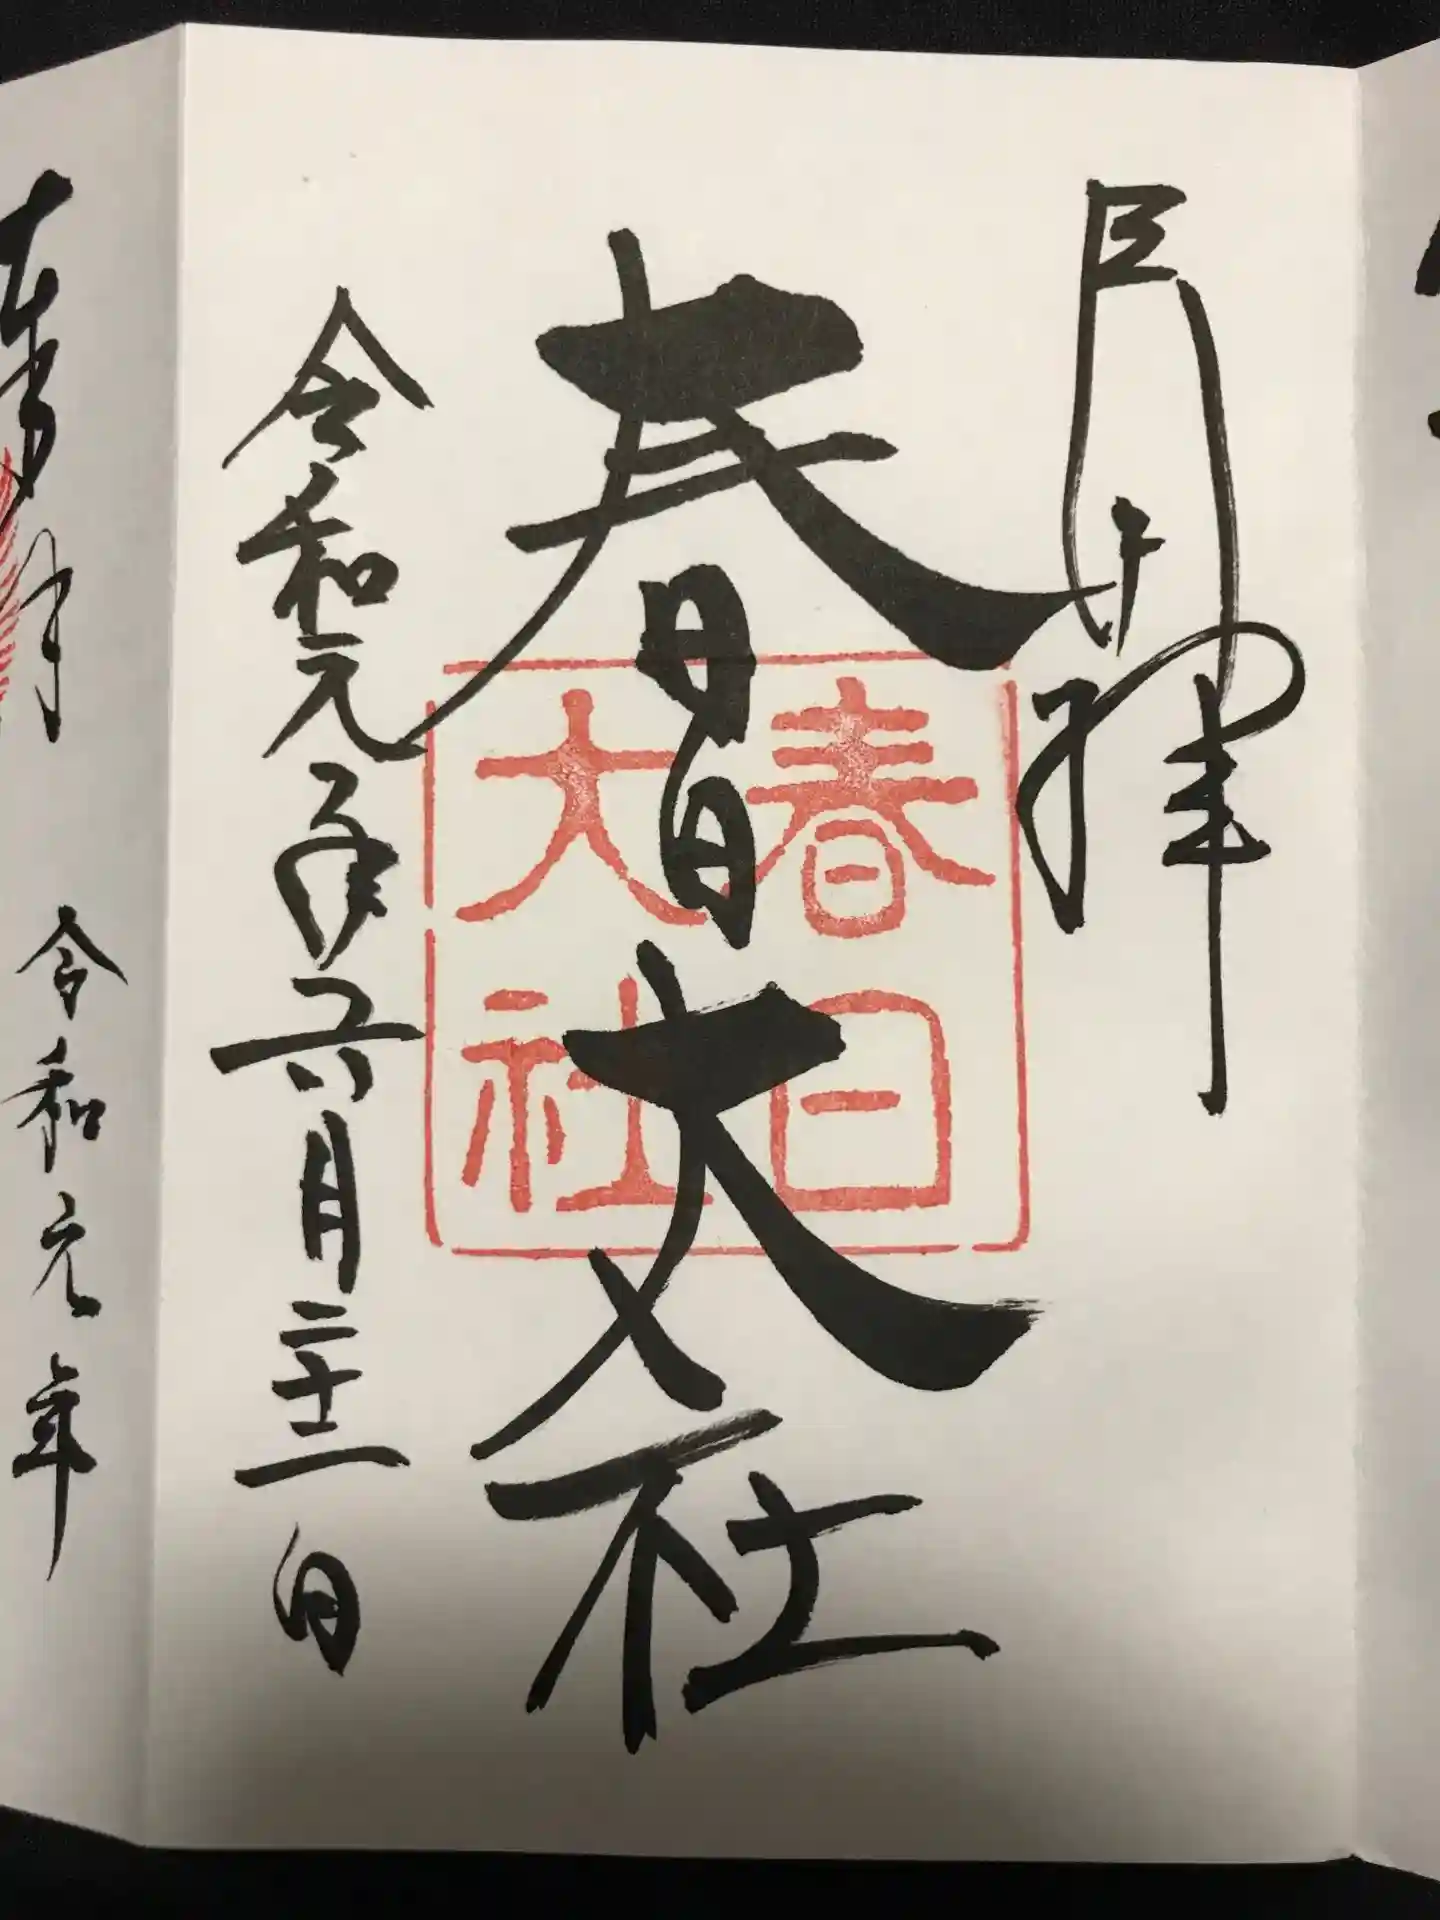 春日大社
春日
大社
令和元年六月二十一日
令和元年